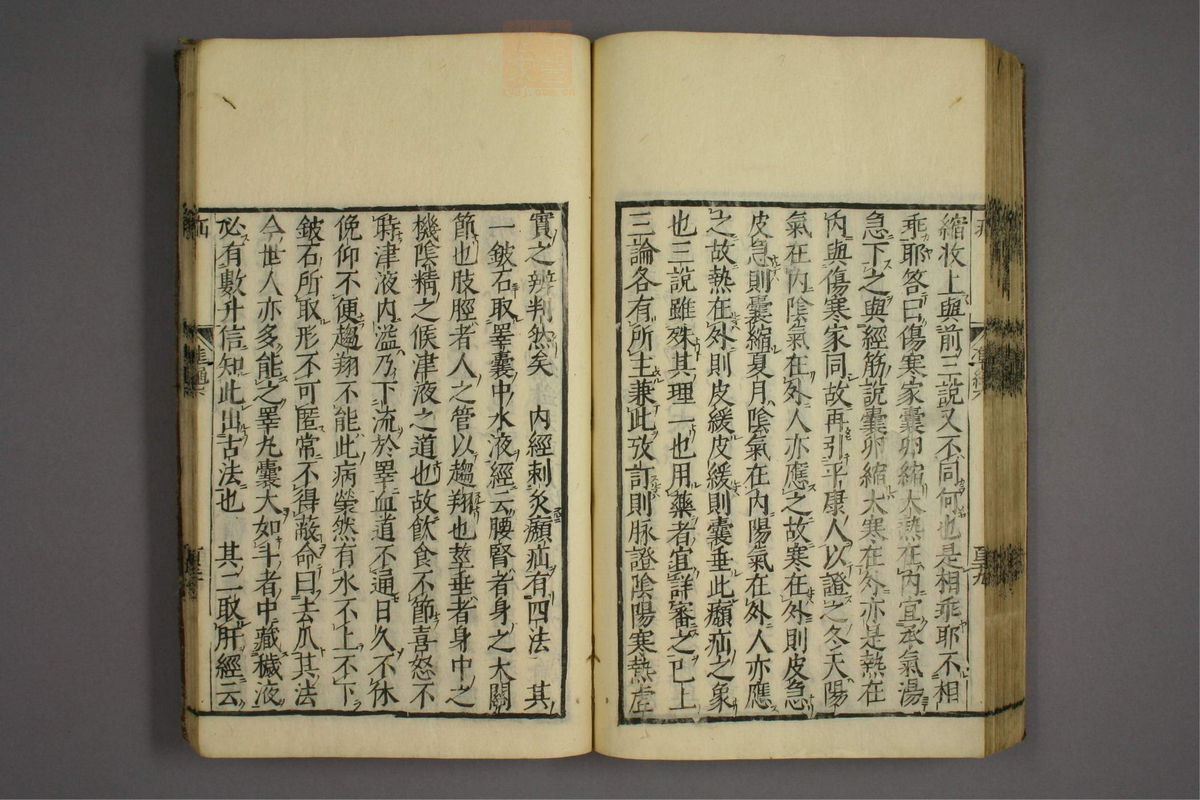 縮收上與前三說又不同何也是相乖耶不相
乖耶答曰傷寒家囊卵縮大熱在內宜承氣湯
急下之與經筋說囊卵縮大寒在外亦是熱在
內與傷寒家同故再引平康人以證之冬天陽
氣在內陰氣在外人亦應之故寒在外則皮急
皮急則囊縮夏月陰氣在內陽氣在外人亦應
之故熱在外則皮緩皮緩則囊垂此㿗疝之象
也三說雖殊其理一也用藥者宜詳審之已上
三論各有所主兼此攷訂則脉證陰陽寒熱虛
實之辨判然矣　內經刺灸㿗疝有四法　其
一鈹石取睪囊中水液經云腰腎者身之大關
節也肢脛者人之管以趨翔也莖垂者身中之
機陰精之候津液之道也故飲食不節喜怒不
時津液內溢乃下流於睪血道不通日久不休
俛仰不便趨翔不能此病滎然有水不上不下
鈹石所取形不可匿常不得蔽命曰去爪其法
今世人亦多能之睪丸囊大如斗者中藏穢液
必有數升信知此出古法也　其二取肝經云